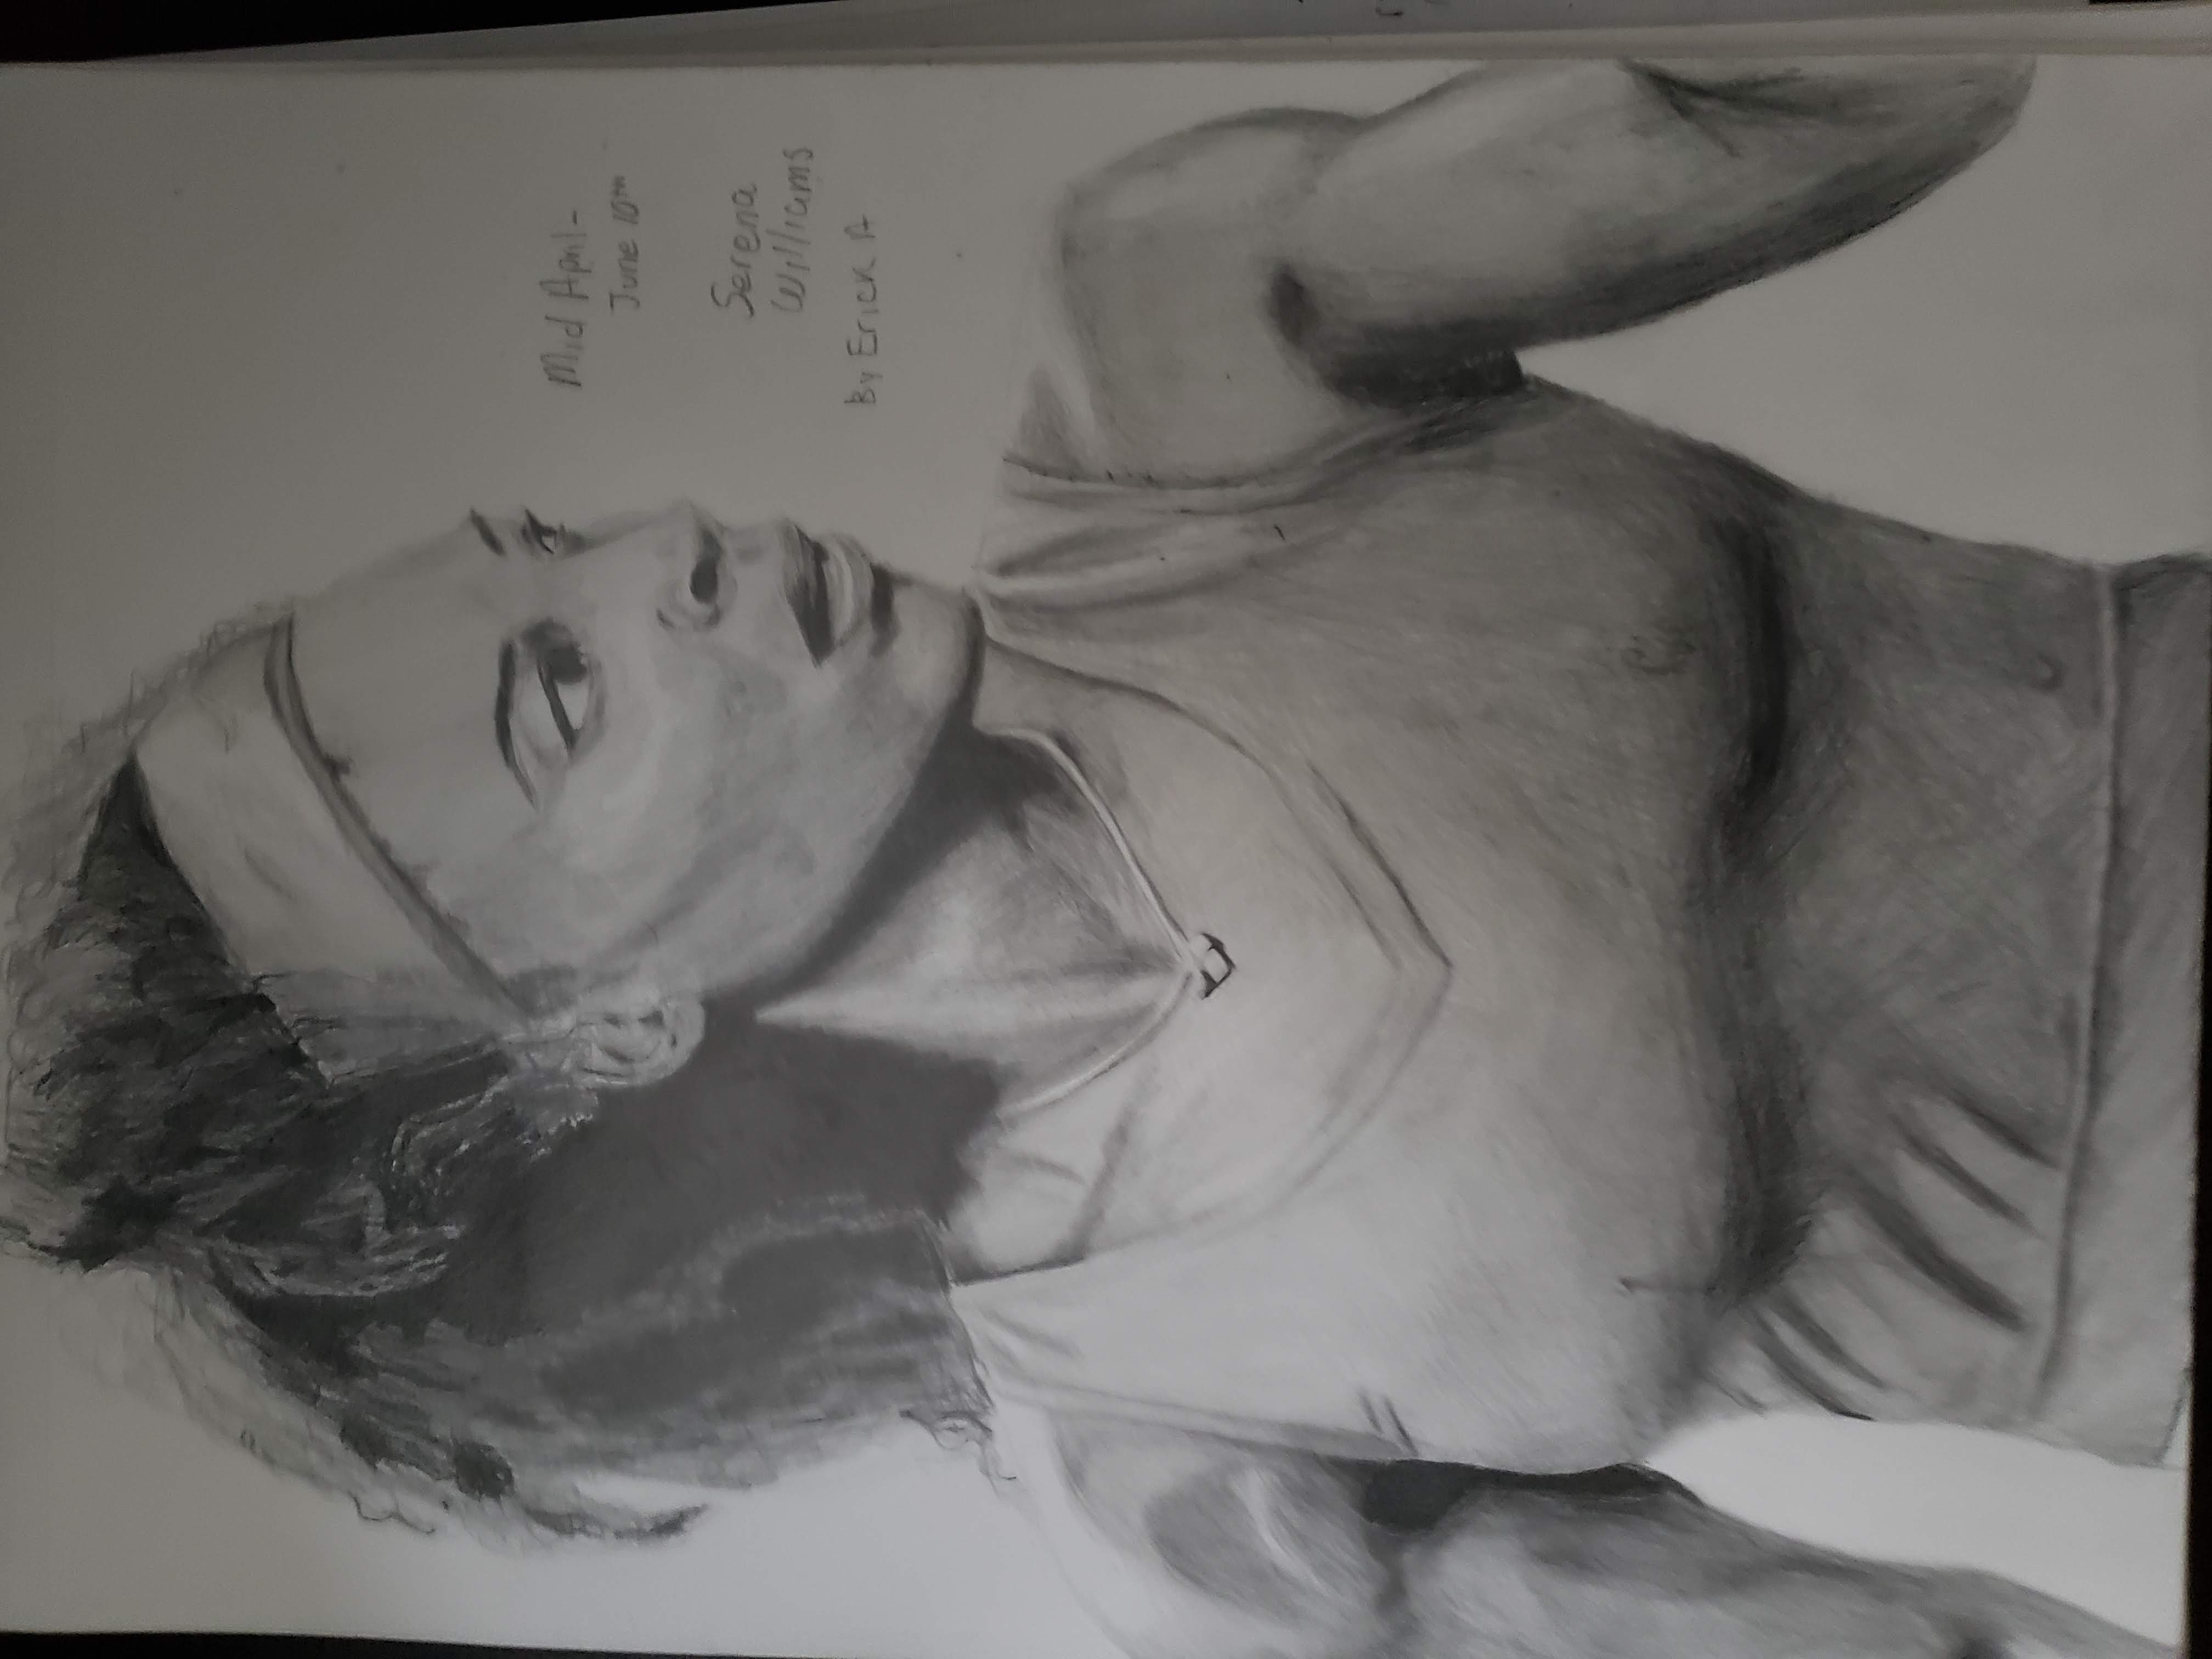 Mid April-
June 10th
Serena
Williams
By Erick A